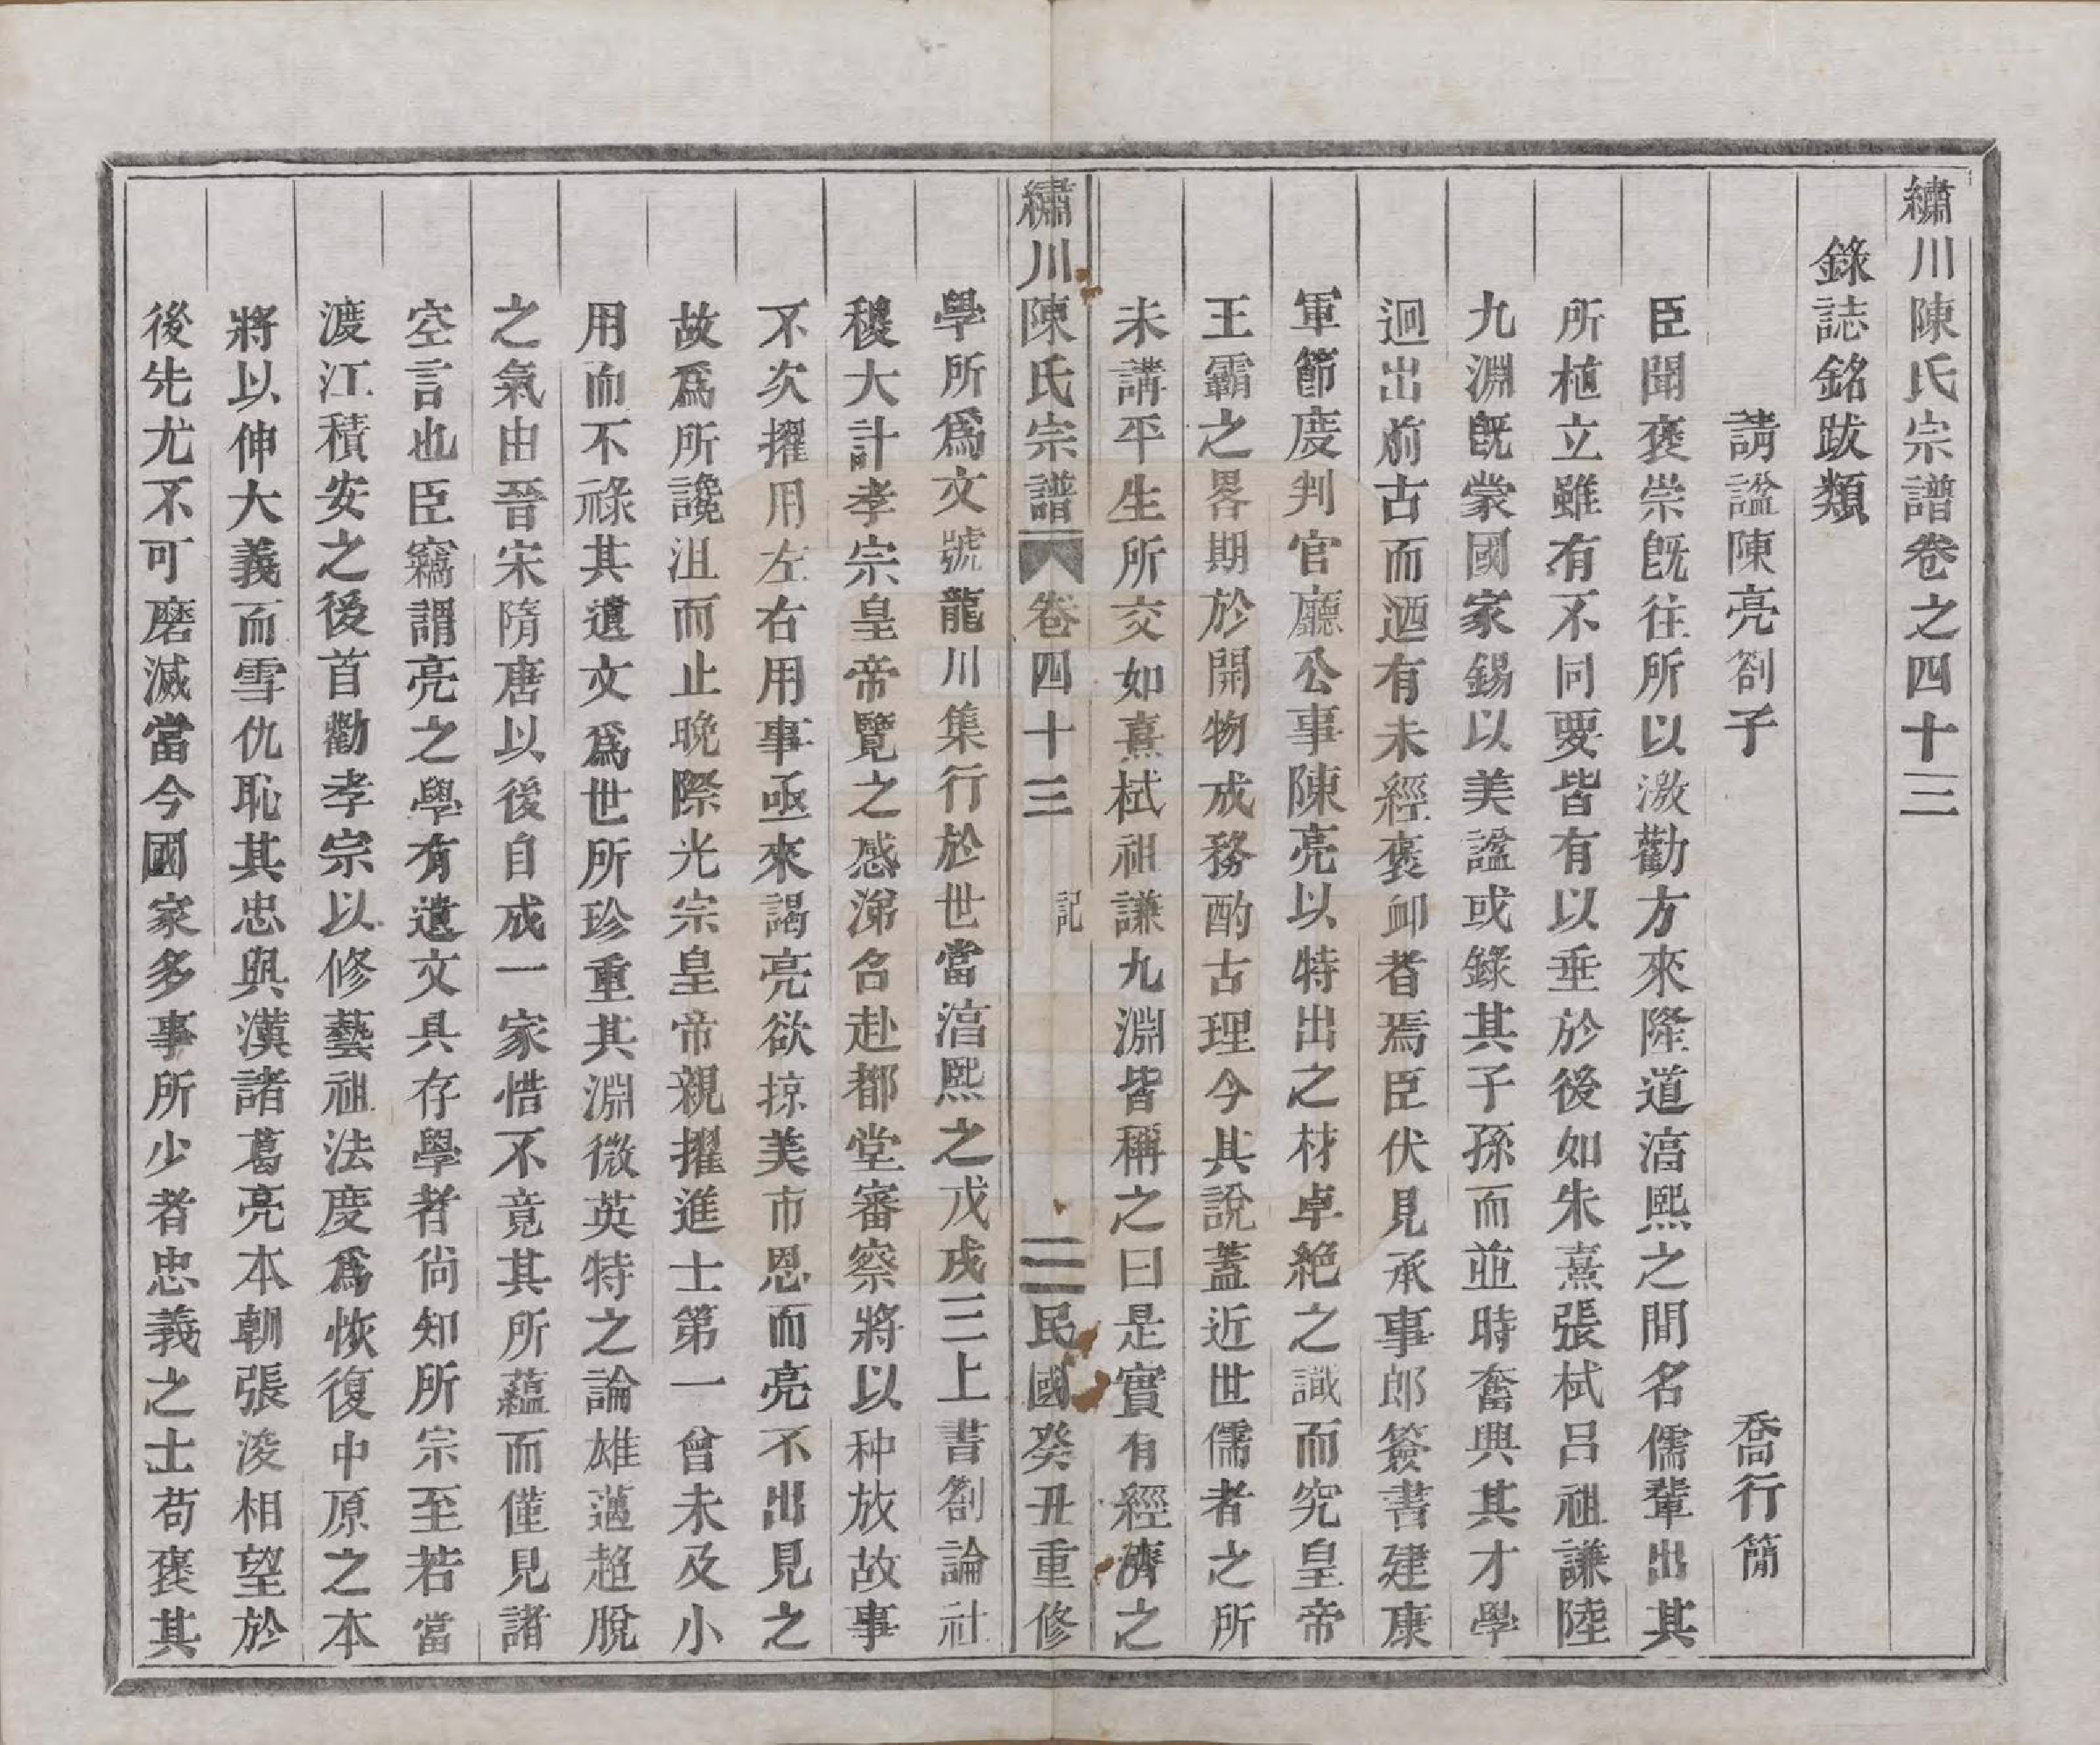 繡川陳氏宗譜卷之四十三
錄誌銘跋類
請諡陳亮劄子　喬行簡
臣聞褒崇旣往所以激勸方來隆道湻熙之間名儒輩出其
所植立雖有不同要皆有以垂於後如朱熹張栻呂祖謙陸
九淵旣蒙國家錫以美諡或錄其子孫而並時奮興其才學
迥出前古而迺有未經褒卹者焉臣伏見承事郎簽書建康
軍節度判官廳公事陳亮以特出之材卓絶之識而究皇帝
王霸之畧期於開物成務酌古理今其說蓋近世儒者之所
未講平生所交如熹栻祖謙九淵皆稱之曰是實有經濟之
繡川陳氏宗譜　卷四十三　記　二　民國癸丑重修
學所爲文號龍川集行於世當湻熙之戊戌三上書劄論社
稷大計孝宗皇帝覽之感涕召赴都堂審察將以种放故事
不次擢用左右用事亟來謁亮欲掠美市恩而亮不出見之
故爲所讒沮而止晚際光宗皇帝親擢進士第一曾未及小
用而不祿其遺文爲世所珍重其淵微英特之論雄邁超脫
之氣由晉宋隋唐以後自成一家惜不竟其所蘊而僅見諸
空言也臣竊謂亮之學有遺文具存學者尙知所宗至若當
渡江積安之後首勸孝宗以修藝祖法度爲恢復中原之本
將以伸大義而雪仇恥其忠與漢諸葛亮本朝張浚相望於
後先尤不可磨滅當今國家多事所少者忠義之士苟褒其